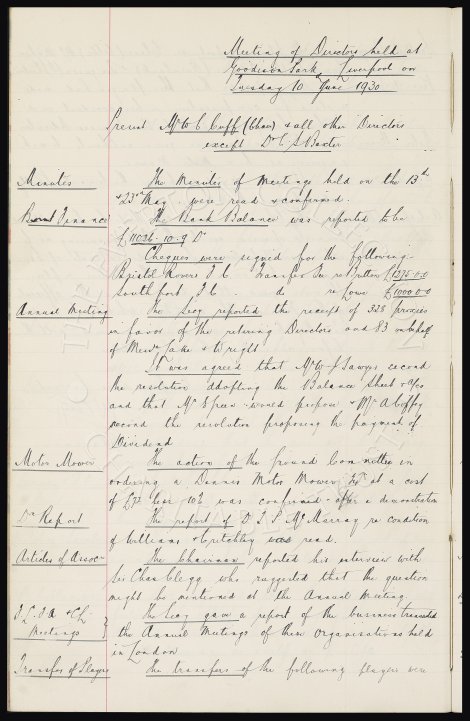 Meeting of Directors held at
Goodison Park, Liverpool on
Tuesday 10 June 1930
Present Mr W C Cuff (Chair) & all other Directors
except Dr C S Baxter
Minutes The Minutes of Meetings held on the 13th
& 23rd May were read & confirmed.
Finance The Bank Balance was reported to be
£11026.10.9 Dr
Cheques were signed for the following:
Bristol Rovers F C Transfer Fee re £1275.0.0
Southport F C do re Lowe £1000.0.0
Annual Meeting The Secy reported the receipt of 328 proxies
in favor of the retiring Directors and 83 on behalf
of Messrs Lake & Wright
It was agreed that Mr W J Sawyer second
the resolution adopting the Balance Sheet &
and that Mr Green would propose & Mr A Coffey
second the resolution proposing the payment of
Dividend
Motor Mower The action of the Ground Committee in
ordering a Dennis Motor Mower at a cost
of £72 less 10% was confirmed - after a demonstration
Drs Report The report of D. J. S. McMurray re condition
of Williams & Critchley was read.
Articles of Assoc The Chairman reported his interview with
Sir Chas Clegg who suggested that the question
might be mentioned at the Annual Meeting.
Meetings The Secy gave a report of the business transacted
the Annual Meetings of these Organisations held
in London
Transfer of Players The transfers of the following players were